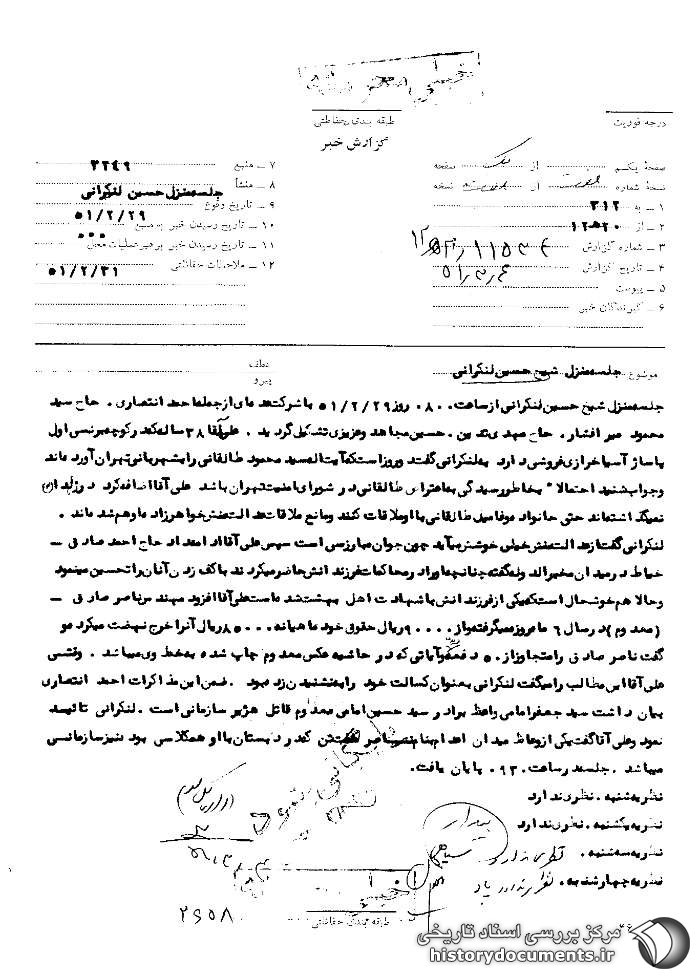 درجه فوریت
طبقه بندی حفاظتی
گزارش خبر
صفحه یکم از یک صفحه
نسخه شماره از نسخه
۱ ـ به ۳۱۲
۲ ـ از ۲۰ه۱۲
۳ ـ شماره گزارش
۴ ـ تاریخ گزارش
۵ ـ پیوست
۶ ـ گیرندگان خبر
۷ ـ منبع ۳۲۴۹
۸ ـ منشأ جلسه منزل حسین لنکرانی
۹ ـ تاریخ وقوع ۵۱/۲/۲۹
۱۰ ـ تاریخ رسیدن خبر به منبع ۰۰۰
۱۱ ـ تاریخ رسیدن خبر به رهبر عملیات محل ۵۱/۲/۳۱
۱۲ ـ ملاحظات حفاظتی
موضوع جلسه منزل شیخ حسین لنکرانی
عطف
پیرو
جلسه منزل شیخ حسین لنکرانی از ساعت ۰۸۰۰ روز ۵۱/۲/۲۹ با شرکت عده ای از جمله احمد انتصاری ، حاج سید
محمود میر افشار ، حاج مهدی تدین ، حسین مجاهد و عزیزی تشکیل گردید . علی آقا ۳۸ ساله که در کوچه برنسی اول
پاساژ آسیا خرازی فروشی دارد به لنکرانی گفت دو روز است که آیت اله سید محمود طالقانی را بشهربانی تهران آورده اند
و جواب شنید احتمالا" بخاطر رسیدگی به اعتراض طالقانی در شورای امنیت تهران باشد علی آقا اضافه کرد
نمیگذاشته اند حتی خانواده و فامیل طالقانی با او ملاقات کنند و مانع ملاقات عدالت منش خواهرزاده او هم شده اند .
لنکرانی گفت از عدالت منش خیلی خوشش میآید چون جوان مبارزسی است سپس علی آقا از امتداد حاج احمد صادق ـ
خیاط در میدان مخبرالدوله گفت چنانچه او را در محاکمات فرزندانش حاضر میکردند با کف زدن آنان را تحسین مینمود
و حالا هم خوشحال است که یکی از فرزندانش با شهادت اهل بهشت شده است علی آقا افزود مهندس ناصر صادق ـ
(معدوم) در سال ۶ ماه روزه میگرفته و از ۹۰۰۰۰ ریال حقوق خود ماهیانه ۸۵۰۰۰ ریال آنرا خرج نهضت میکرد و
گفت ناصر صادق را متجاوز از ۵۰ دفعه و آیاتی که در حاشیه عکس معدوم چاپ شده به خط وی میباشد . وقتی
علی آقا این مطالب را میگفت لنکرانی بعنوان کسالت خود را به نشنیدن زده بود . ضمن این مذاکرات احمد انتصاری
بیان داشت سید جعفر امامی واعظ برادر سید حسین امامی معدوم قاتل هژیر سازمانی است . لنکرانی تائید
نمود و علی آقا گفت یکی از وعاظ میدان اعدام بنام که در دبستان با او همکلاسی بود نیز سازمانی
میباشد . جلسه در ساعت ۰۹۳۰ پایان یافت.
نظریه شنبه . نظری ندارد
نظریه یکشنبه . نظری ندارد
نظریه سه شنبه . نظری ندارد
نظریه چهارشنبه . نظری ندارد
بیدار
۲۶۵۸۰
طبقه بندی حفاظتی
مرکز بررسی اسناد تاریخی
historydocuments.ir